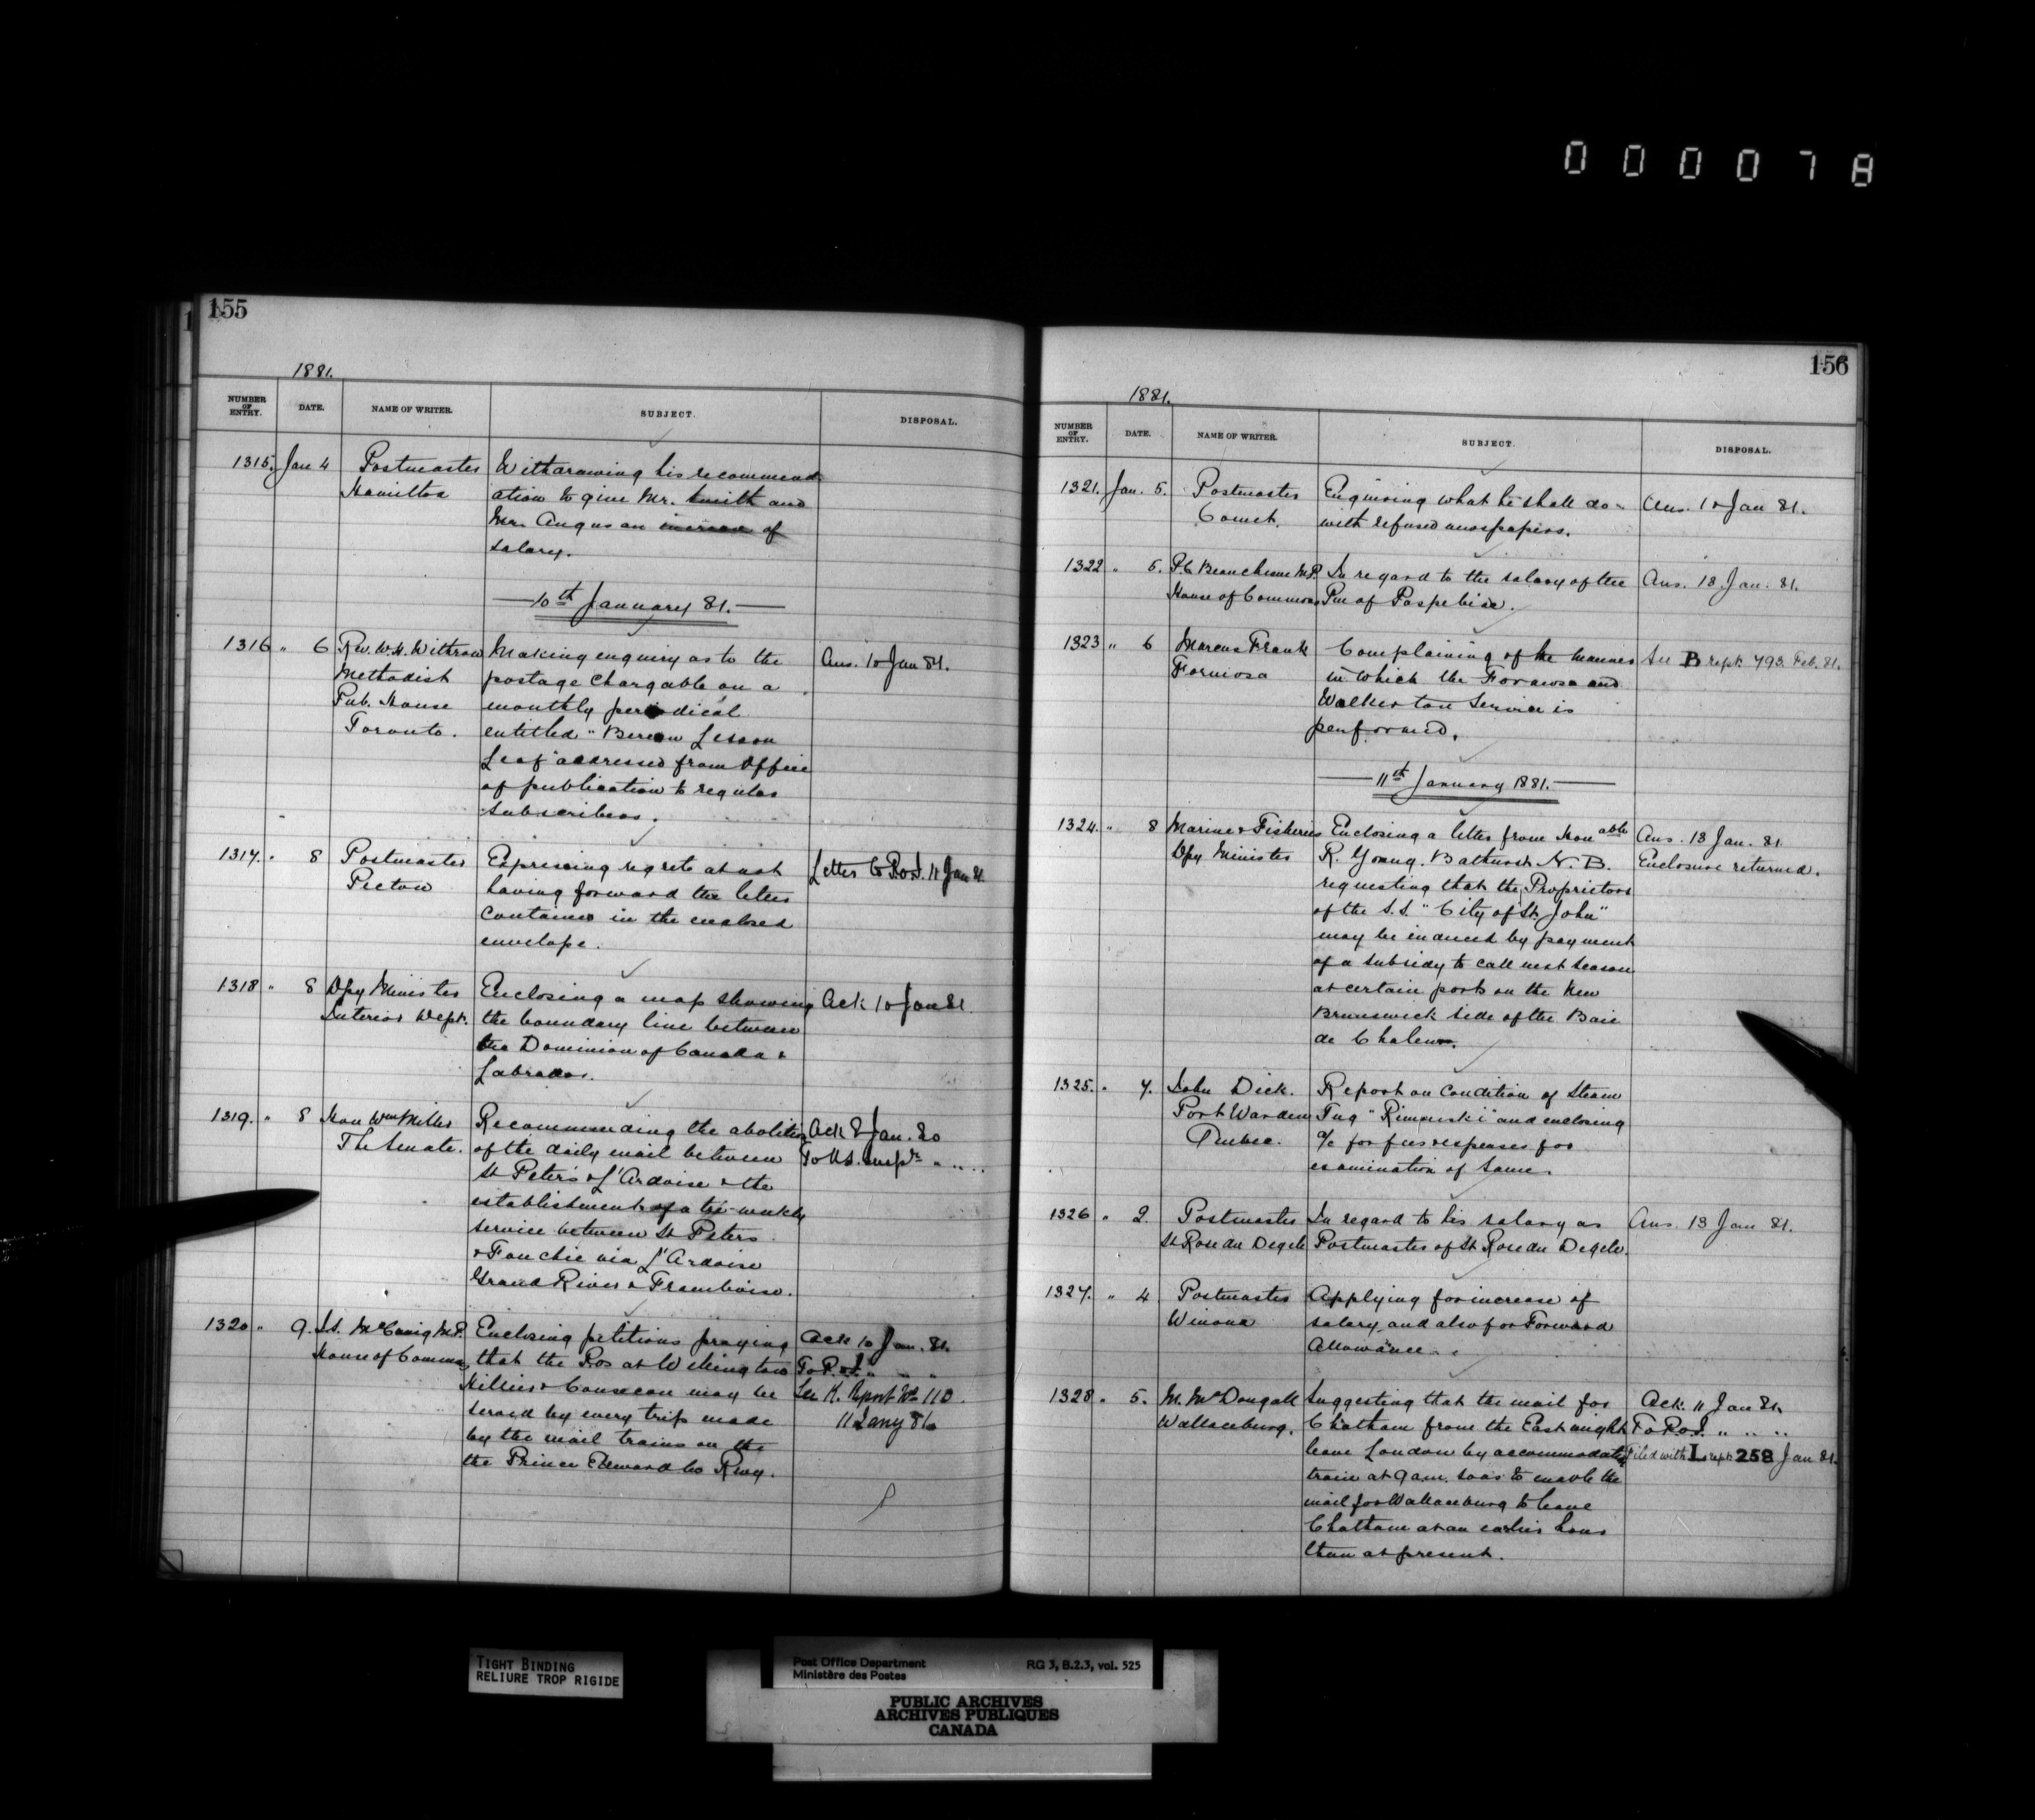 000078
155
1881.
NUMBER OF ENTRY. DATE. NAME OF WRITER. SUBJECT. DISPOSAL.
1315. Jan 4 Postmaster Withdrawing his recommend
Hamilton ation to give Mr. Smith and
Mr. Angus an increase of
salary.
10th January 81.
1316 " 6 Rev. W.H. Withrow Making enquiry as to the Ans. 10 Jan 81.
Methodist postage chargable on a
Pub. House monthly periodical
Toronto. entitled "Berean Lesson
Leaf" addressed from Office
of publication to regular
subscribers.
1317. " 8 Postmaster Expressing regrets at not Letter to P.O.I. 11 Jan 81
Picton having forward the letters
contained in the enclosed
envelope.
1318 " 8 Dpy Minister Enclosing a map showing Ack 10 Jan 81
Interior Dept. the boundary line between
the Dominion of Canada &
Labrador.
1319. " 8 Hon Wm Miller Recommending the abolition Ack 8 Jan. 80
The Senate. of the daily mail between To N.S. Inspr " " "
St Peter's & L'Ardoise & the
establishment of a tri-weekly
service between St Peters
& Fouchie via L'Ardoise
Grand River & Framboise.
1320 " 9. J.S. McCuaig M.P. Enclosing petitions praying Ack 10 Jan. 81.
House of Commons, that the P.Os at Wellington To P.O.I. " " "
Hillier & Consecon may be See K. Report No 110.
served by every trip made 11 Jany 81
by the mail trains on the
the Prince Edward Co Rwy.
156
1881.
NUMBER OF ENTRY. DATE. NAME OF WRITER. SUBJECT. DISPOSAL.
1321. Jan. 5. Postmaster Enquiring what he shall do Ans. 10 Jan 81.
Comet. with refused newspapers.
1322 " 5. P.C. Beauchesne M.P. In regard to the salary of the Ans. 13 Jan. 81.
House of Commons Pm of Paspebiac.
1323 " 6 Marcus Frank Complaining of the manner See B rept 793. Feb. 81.
Formosa in which the Formosa and
Walkerton Service is
performed.
11th January 1881.
1324. " 8 Marine & Fisheries Enclosing a letter from Honable Ans. 13 Jan. 81
Dpy Minister R. Young. Bathurst N.B. Enclosure returned.
requesting that the Proprietors
of the S.S. "City of St. John"
may be induced by payment
of a subsidy to call next season
at certain ports on the New
Brunswick side of the Baie
de Chaleurs.
1325. " 7. John Dick. Report on condition of Steam
Port Warden Tug "Rimouski" and enclosing
Quebec. a/c for fees & expenses for
examination of same.
1326 " 2. Postmaster In regard to his salary as Ans. 13 Jan 81.
St Rose du Degele Postmaster of St Rose du Degele.
1327. " 4 Postmaster Applying for increase of
Winona salary, and also for Forward
Allowance.
1328 " 5. M. McDougall Suggesting that the mail for Ack. 11 Jan 81.
Wallaceburg. Chatham from the East might To P.O.I. " " "
leave London by accommodation Filed with L rept 258 Jan 81.
train at 9 am. so as to enable the
mail for Wallaceburg to leave
Chatham at an earlier hour
than at present.
TIGHT BINDING
RELIURE TROP RIGIDE
Post Office Department RG 3, B.2.3, vol. 525
Ministère des Postes
PUBLIC ARCHIVES
ARCHIVES PUBLIQUES
CANADA